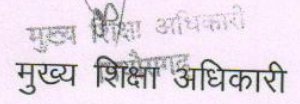 मुख्य शिक्षा अधिकारी
मुख्य शिक्षा अधिकारी